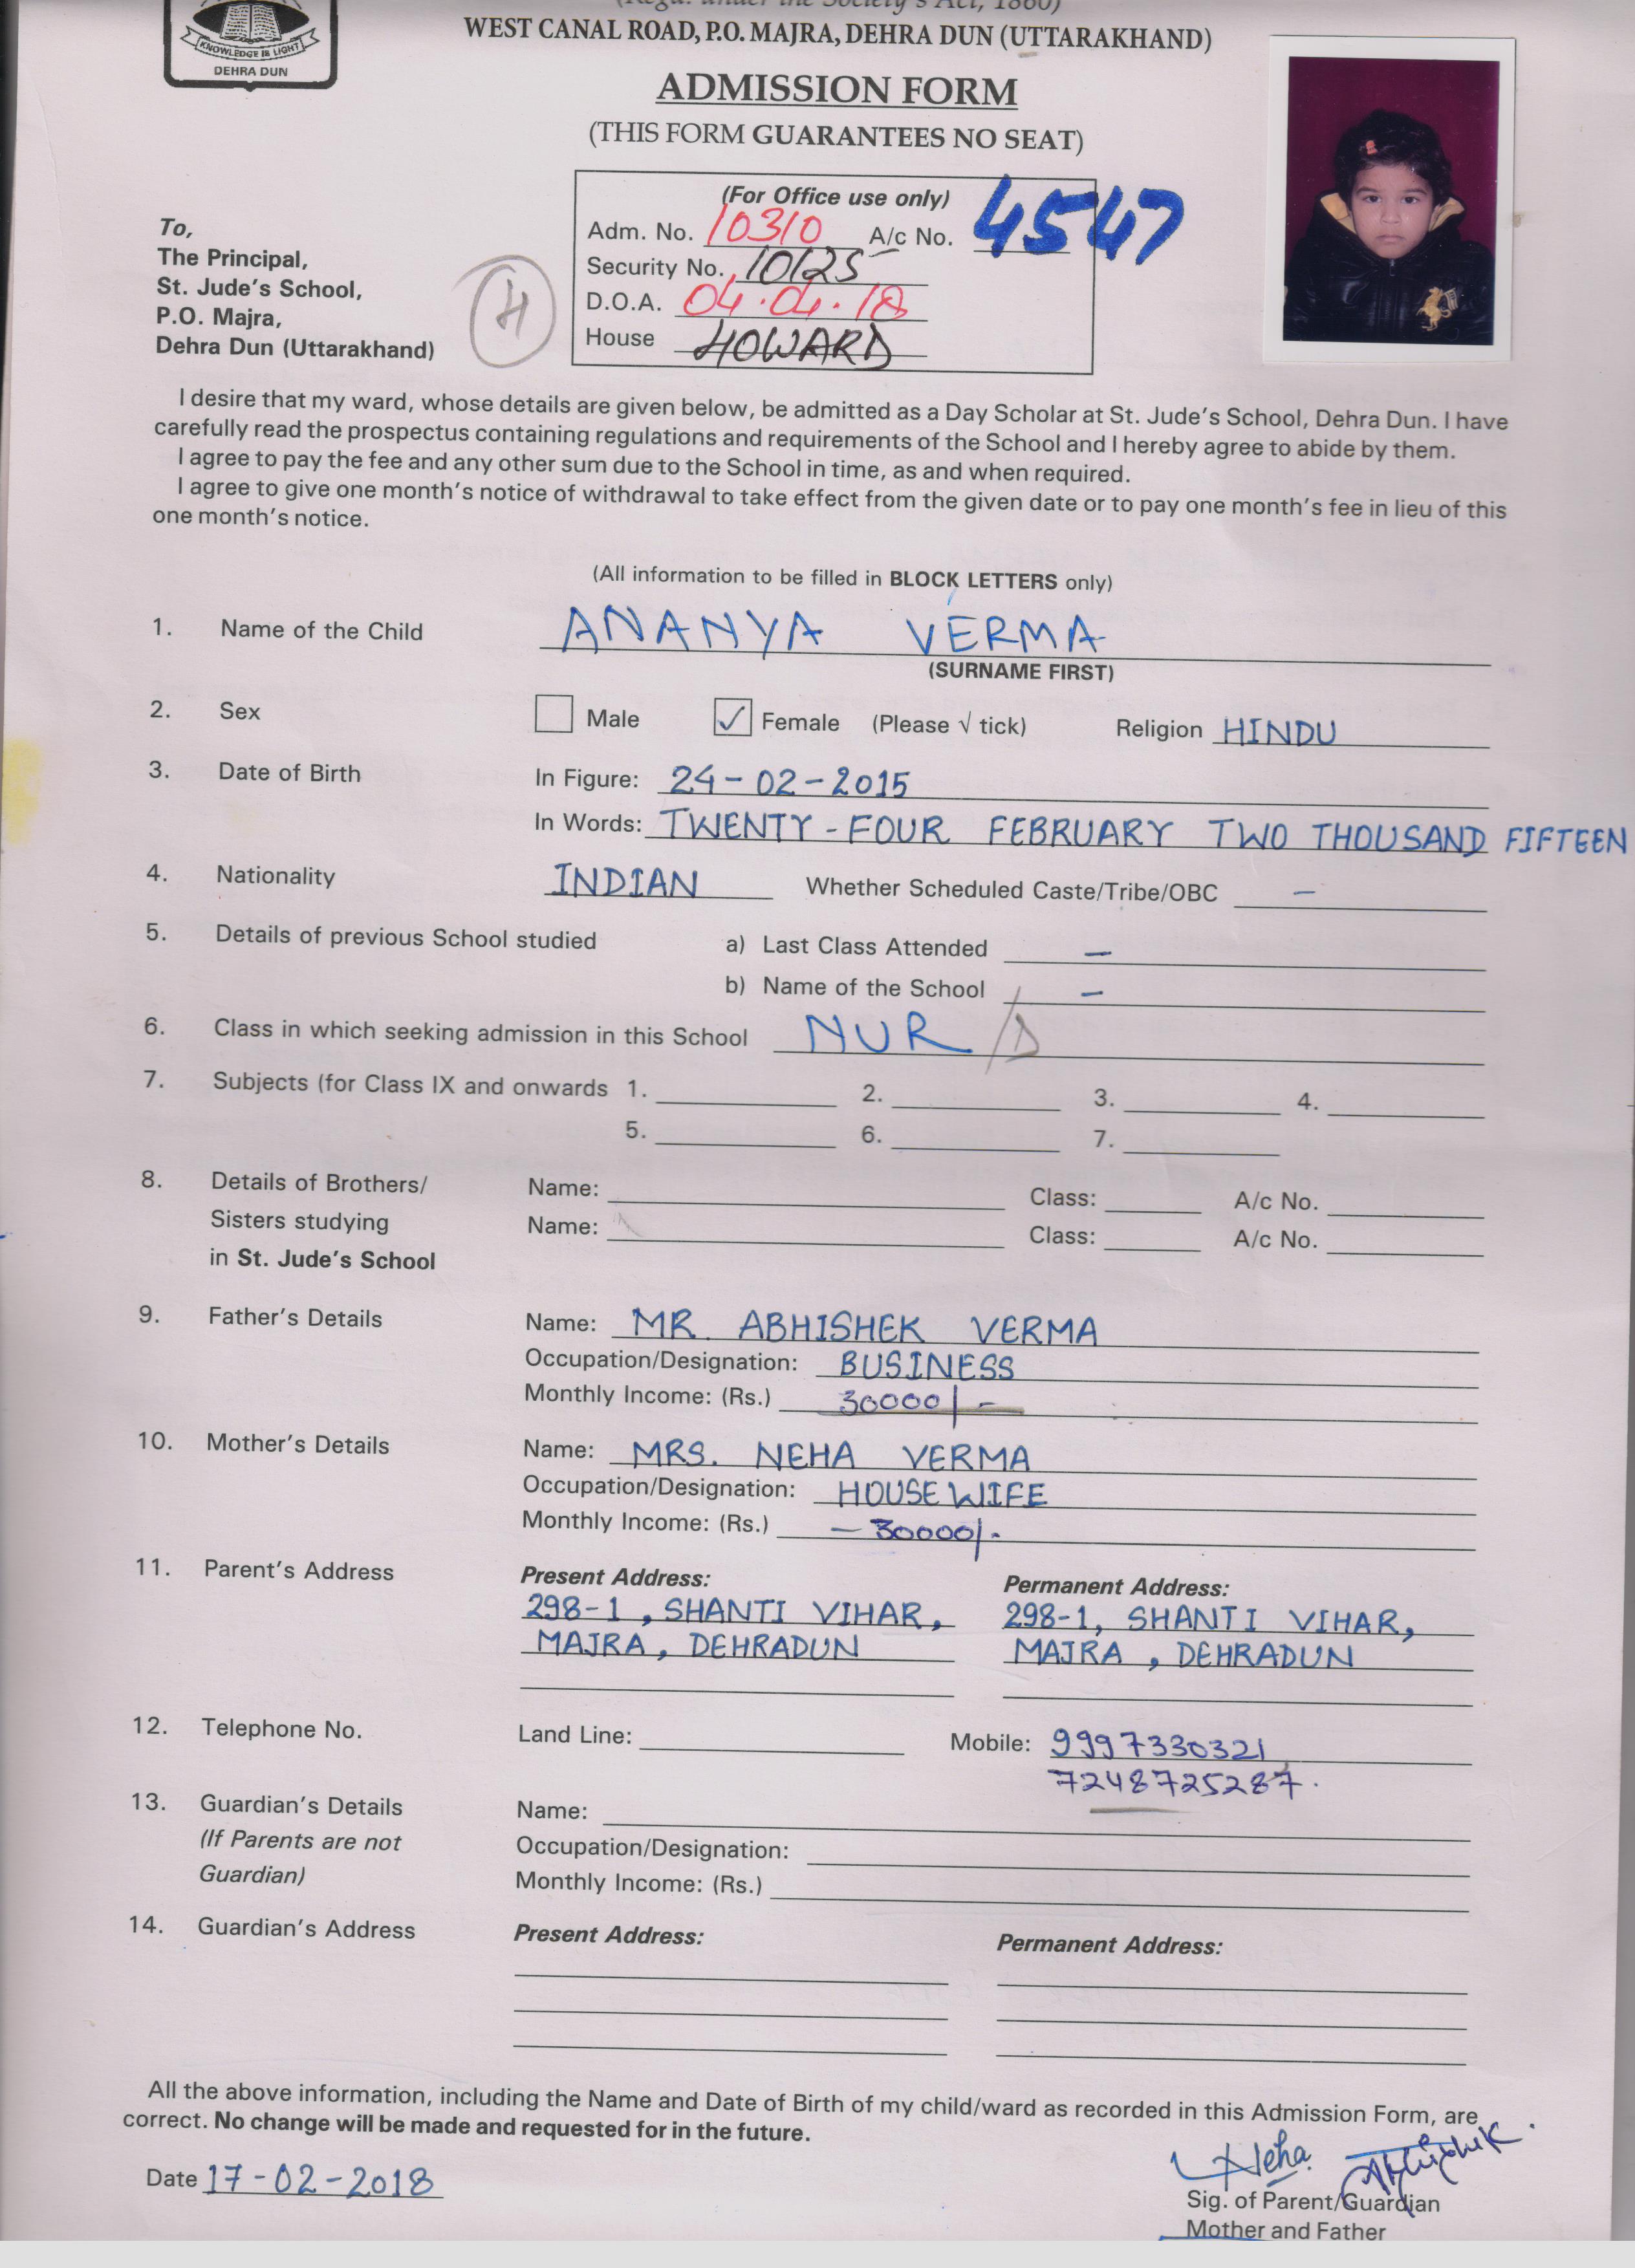 (Regd. under the Society's Act, 1860)
WEST CANAL ROAD, P.O. MAJRA, DEHRA DUN (UTTARAKHAND)
KNOWLEDGE IS LIGHT
DEHRA DUN
ADMISSION FORM
(THIS FORM GUARANTEES NO SEAT)
(For Office use only)
Adm. No. 10310 A/c No. 4547
Security No. 10125
D.O.A. 04.04.18
House HOWARD
To,
The Principal,
St. Jude's School,
P.O. Majra,
Dehra Dun (Uttarakhand)
H
I desire that my ward, whose details are given below, be admitted as a Day Scholar at St. Jude's School, Dehra Dun. I have
carefully read the prospectus containing regulations and requirements of the School and I hereby agree to abide by them.
I agree to pay the fee and any other sum due to the School in time, as and when required.
I agree to give one month's notice of withdrawal to take effect from the given date or to pay one month's fee in lieu of this
one month's notice.
(All information to be filled in BLOCK LETTERS only)
1. Name of the Child ANANYA VERMA
(SURNAME FIRST)
2. Sex Male ✓ Female (Please √ tick) Religion HINDU
3. Date of Birth In Figure: 24-02-2015
In Words: TWENTY-FOUR FEBRUARY TWO THOUSAND FIFTEEN
4. Nationality INDIAN Whether Scheduled Caste/Tribe/OBC –
5. Details of previous School studied a) Last Class Attended –
b) Name of the School –
6. Class in which seeking admission in this School NUR /D
7. Subjects (for Class IX and onwards 1. 2. 3. 4.
5. 6. 7.
8. Details of Brothers/ Name: Class: A/c No.
Sisters studying Name: Class: A/c No.
in St. Jude's School
9. Father's Details Name: MR. ABHISHEK VERMA
Occupation/Designation: BUSINESS
Monthly Income: (Rs.) 30000/-
10. Mother's Details Name: MRS. NEHA VERMA
Occupation/Designation: HOUSE WIFE
Monthly Income: (Rs.) – 30000/-
11. Parent's Address Present Address: Permanent Address:
298-1, SHANTI VIHAR, 298-1, SHANTI VIHAR,
MAJRA, DEHRADUN MAJRA, DEHRADUN
12. Telephone No. Land Line: Mobile: 9997330321
7248725287.
13. Guardian's Details Name:
(If Parents are not Occupation/Designation:
Guardian) Monthly Income: (Rs.)
14. Guardian's Address Present Address: Permanent Address:
All the above information, including the Name and Date of Birth of my child/ward as recorded in this Admission Form, are
correct. No change will be made and requested for in the future.
Neha Abhishek
Date 17-02-2018
Sig. of Parent/Guardian
Mother and Father